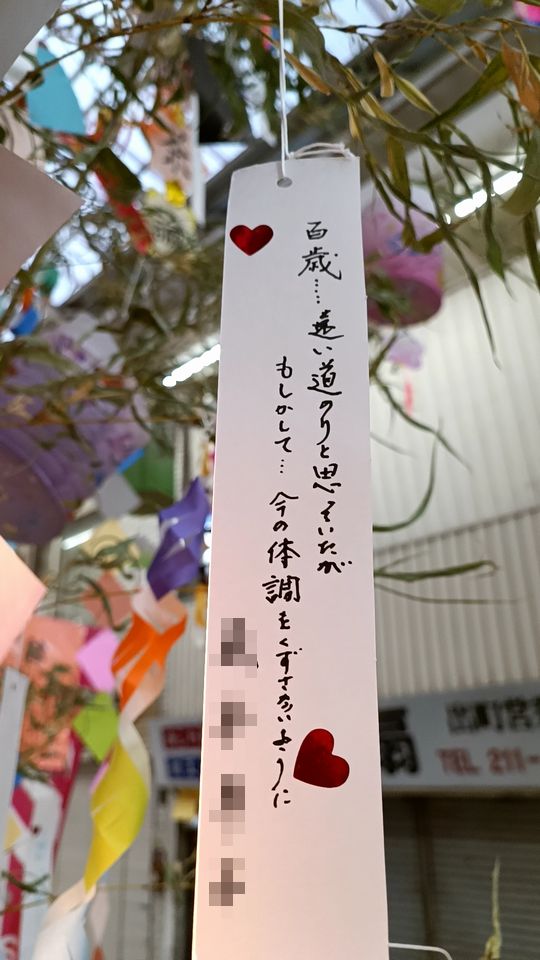 百歳……遠い道のりと思っていたが
もしかして…今の体調をくずさないように
TEL 211-